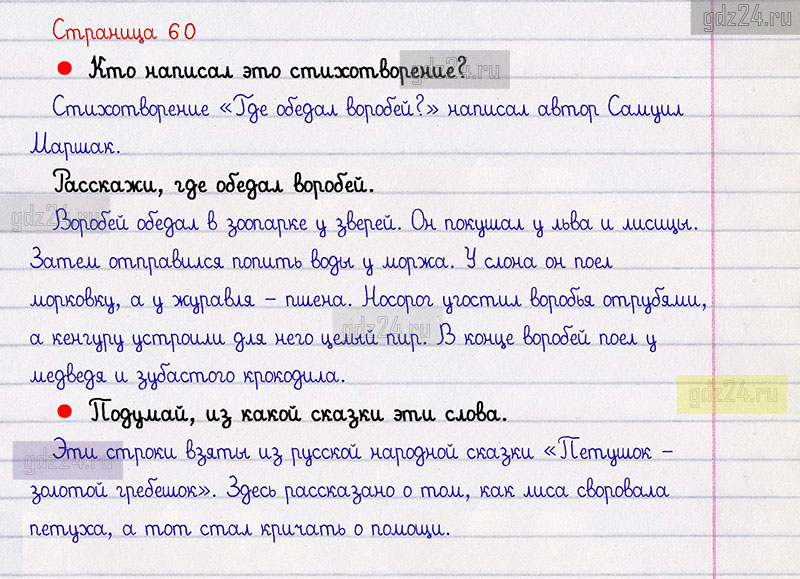 gdz24.ru
Страница 60
• Кто написал это стихотворение?
gdz24.ru
Стихотворение «Где обедал воробей?» написал автор Самуил
Маршак.
Расскажи, где обедал воробей.
gdz24.ru
Воробей обедал в зоопарке у зверей. Он покушал у льва и лисицы.
Затем отправился попить воды у моржа. У слона он поел
морковку, а у журавля – пшена. Носорог угостил воробья отрубями,
gdz24.ru
а кенгуру устроили для него целый пир. В конце воробей поел у
медведя и зубастого крокодила.
gdz24.ru
• Подумай, из какой сказки эти слова.
Эти строки взяты из русской народной сказки «Петушок –
gdz24.ru
золотой гребешок». Здесь рассказано о том, как лиса своровала
петуха, а тот стал кричать о помощи.